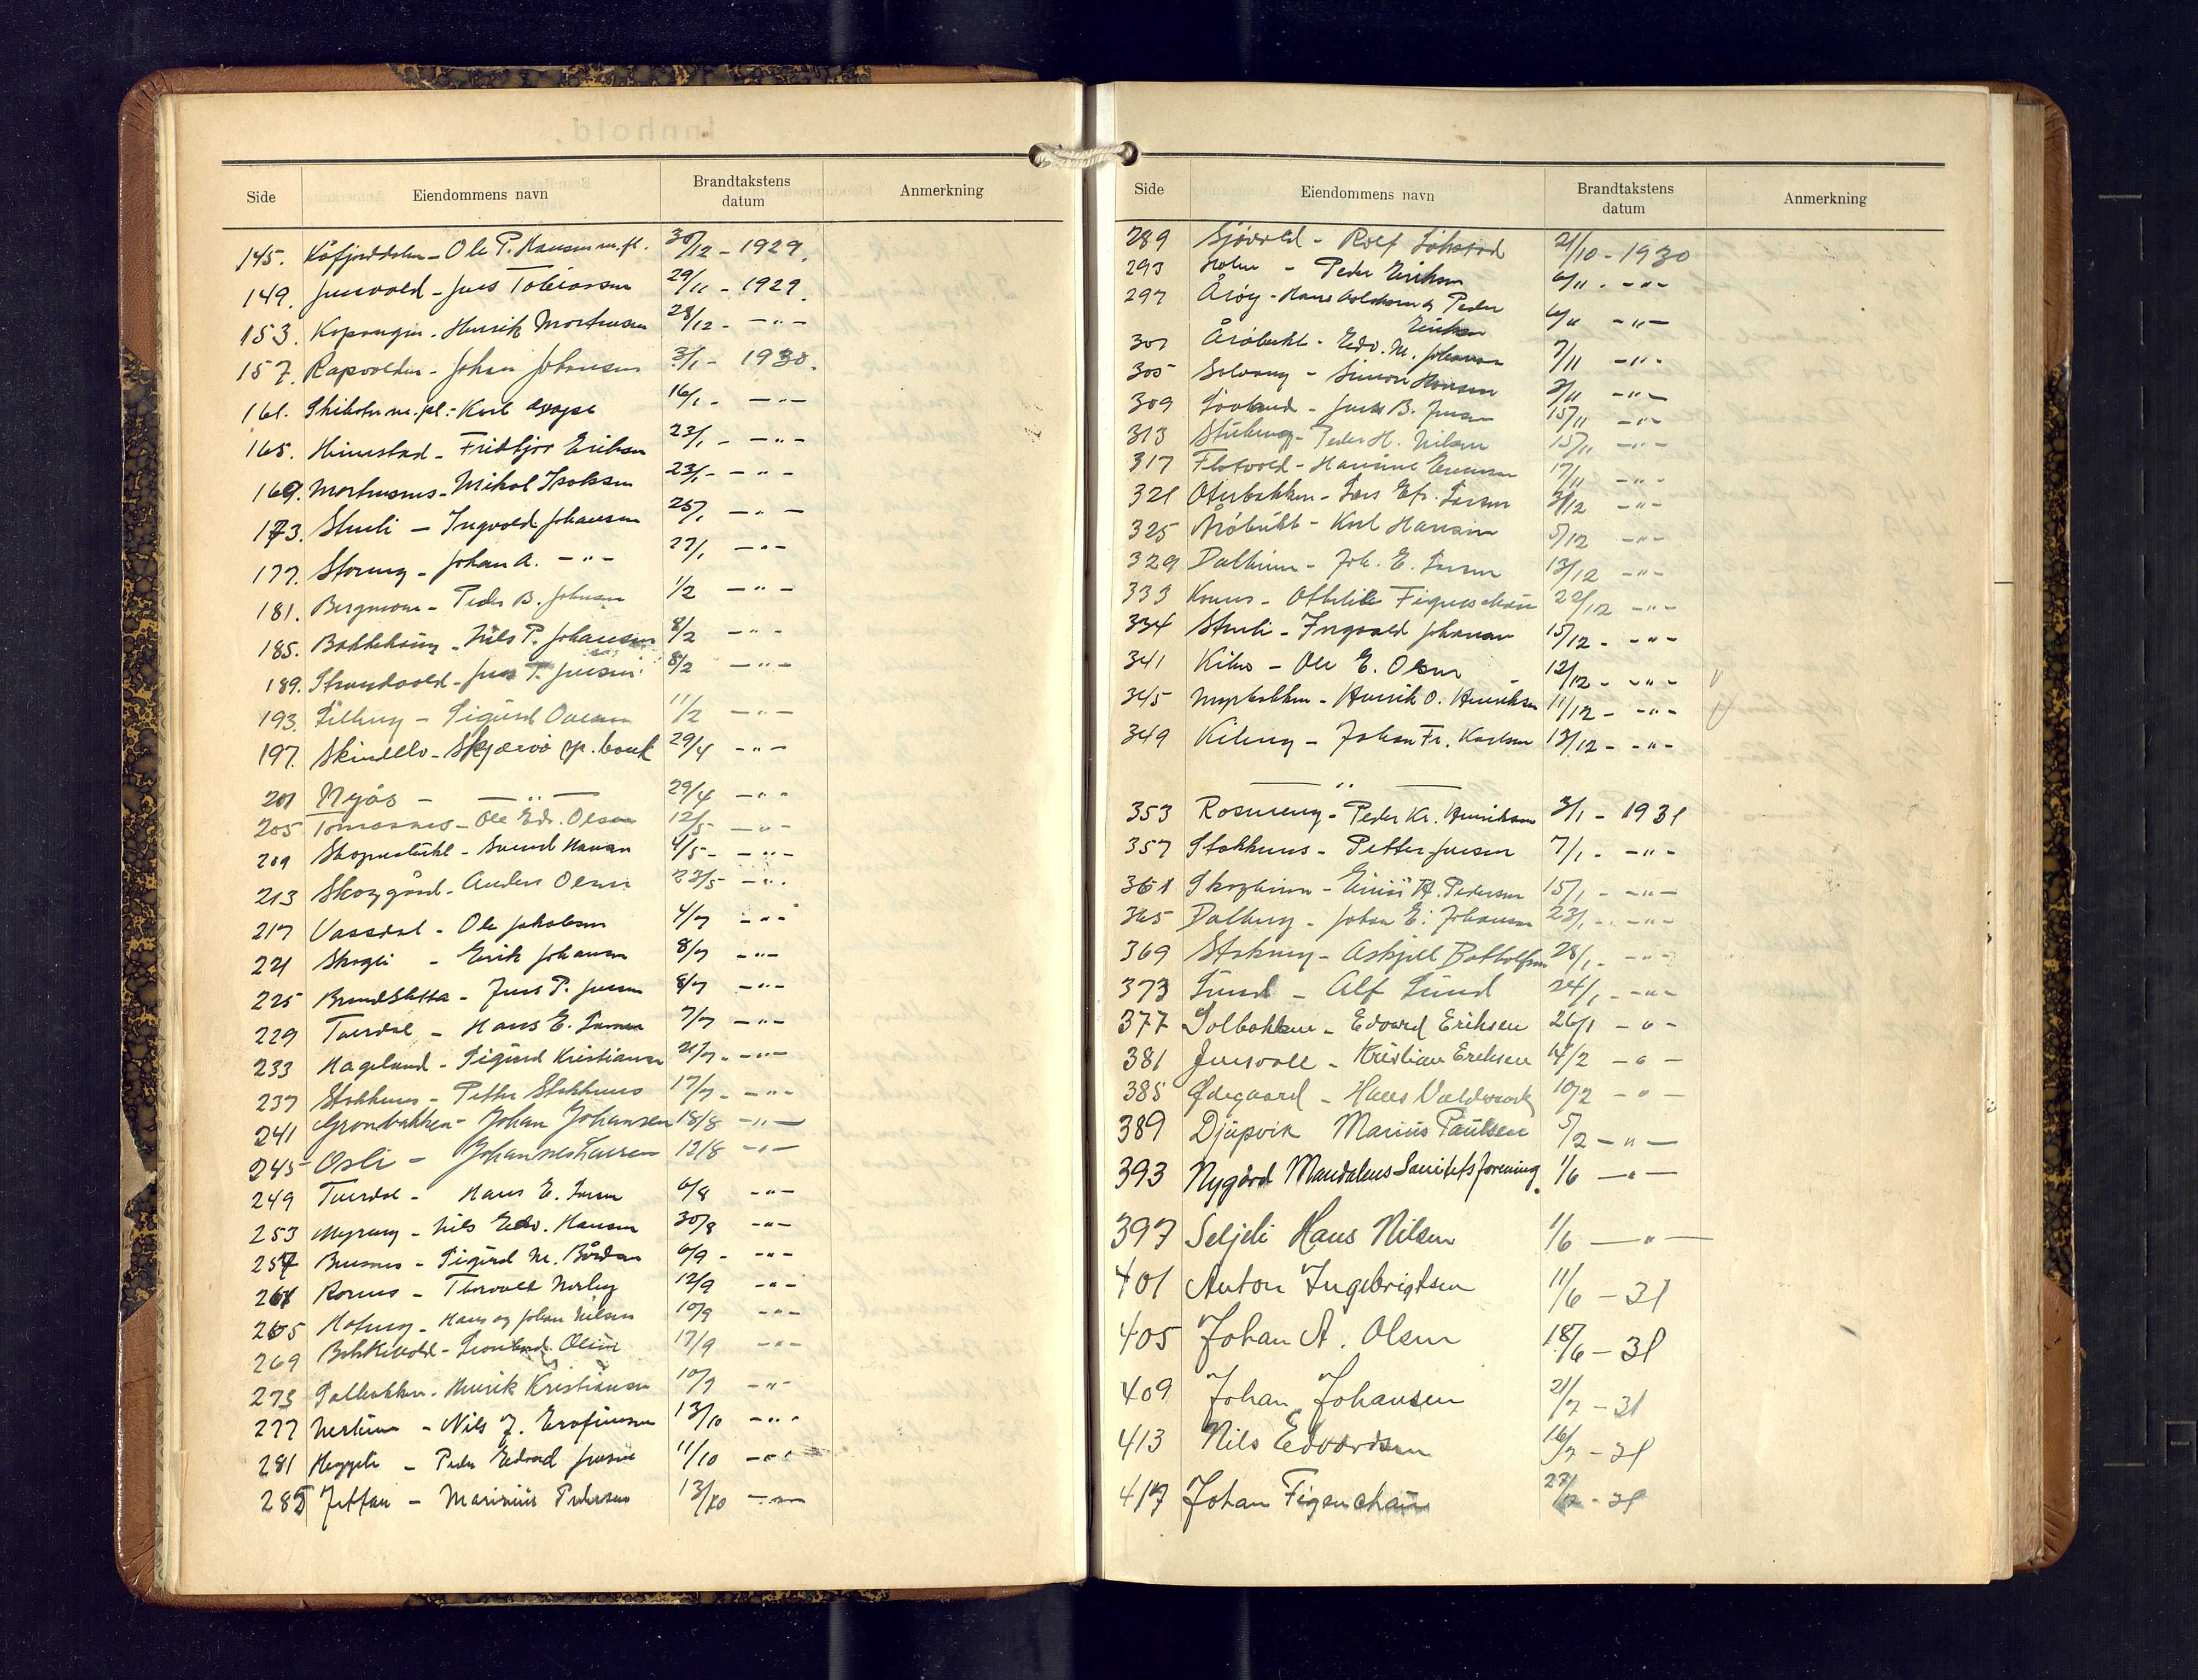 Side Eiendommens navn Brandtakstens datum Anmerkning
145. Kåfjorddalen - Ole P. Hansen m.fl. 30/12 - 1929.
149. Jensvold - Jens Tobiassen 29/11 - 1929.
153. Kopangen - Henrik Mortensen 28/12 - -"-
157. Rapvolden - Johan Johansen 3/1 - 1930.
161. Skibotn m.fl. - Karl 16/1 - -"-
165. Heimstad - Fridtjov Eriksen 23/1 - -"-
169. Mortensnes - Mikal Isaksen 23/1 - -"-
173. Stenli - Ingvald Johansen 25/1 -"-
177. Storeng - Johan A. -"- 27/1 -"-
181. Bergmoen - Peder B. Johnsen 1/2 -"-
185. Bakkehaug - Nils P. Johansen 8/2 -"-
189. Strandvold - Jens T. Jensen 8/2 -"-
193. Lilleng - Sigurd 11/2 -"-
197. Skindelv - Skjervø sp. bank 29/4 -"-
201 Nyås - -"- 29/4 -"-
205 Tomasnes - Ole Edv. Olsen 12/5 -"-
209 - Svend Hansen 4/5 - -"-
213 Skoggård - Anders Olsen 23/5 -"-
217 Vassdal - Ole Jakobsen 4/7 -"-
221 Skogli - Erik Johansen 8/7 -"-
225 Brandsletta - Jens P. Jensen 8/7 -"-
229 - Hans E. Larsen 7/7 -"-
233 Hageland - Sigurd Kristiansen 21/7 - -"-
237 Stokknes - Petter Stokknes 17/7 - -"-
241 Grønbakken - Johan Johansen 18/8 -"-
245 Osli - Johannes Larsen 12/8 -"-
249 - Hans E. Larsen 6/8 -"-
253 Myreng - Nils Edv. Hansen 30/8 -"-
257 - Sigurd M. Bårdsen 6/9 - -"-
261 - Thorvald 12/9 -"-
265 - Hans og Johan Nilsen 10/9 -"-
269 17/9 -"-
273 Solbakken - Henrik Kristiansen 10/9 -"-
277 - Nils J. 13/10 -"-
281 Heggeli - Peder Edvard Jensen 11/10 -"-
285 Jettan - Marinius Pedersen 13/10 -"-
Side Eiendommens navn Brandtakstens datum Anmerkning
289 Sjøvold - Rolf 21/10 - 1930
293 Holm - Peder Eriksen 6/11 - -"-
297 Årøy - Hans og Peder
Eriksen 6/11 -"-
301 Årøbukt - Edv. M. Johansen 7/11 -"-
305 Solvang - Simon Hansen 8/11 -"-
309 - Jens B. Jensen 15/11 -"-
313 - Peder H. Nilsen 15/11 -"-
317 Flatvold - 17/11 -"-
321 Oterbakken - Lars Efr. Larsen 3/12 -"-
325 Årøbukt - Karl Hansen 5/12 -"-
329 Dalheim - Joh. E. Larsen 13/12 -"-
333 - Othelie Figenschau 22/12 -"-
334 Stenli - Ingvald Johansen 15/12 - -"-
341 - Ole E. Olsen 12/12 - -"- v
345 Myrbakken - Henrik O. Henriksen 11/12 - -"- v
349 Kileng - Johan Fr. Karlsen 13/12 - -"-
-"-
353 Roseneng - Peder Kr. Henriksen 3/1 - 1931
357 Stokknes - Petter Jensen 7/1 - -"-
361 Skogheim - H. Pedersen 15/1 - -"-
365 Dalberg - Johan E. Johansen 23/1 - -"-
369 - Askjell Bottolfsen 28/1 - -"-
373 Lund - Alf Lund 24/1 - -"-
377 Solbakken - Edvard Eriksen 26/1 -"-
381 Jensvoll - Kristian Eriksen 14/2 -"-
385 Ødegaard - Hans 10/2 -"-
389 Djupvik Marius Paulsen 5/2 -"-
393 Nygård Mandalens Sanitetsforening. 1/6 -"-
397 Seljeli Hans Nilsen 1/6 -"-
401 Anton Ingebrigtsen 11/6 - 31
405 Johan A. Olsen 18/6 - 31
409 Johan Johansen 21/7 - 31
413 Nils Edvardsen 16/7 - 31
417 Johan Figenschau - 31